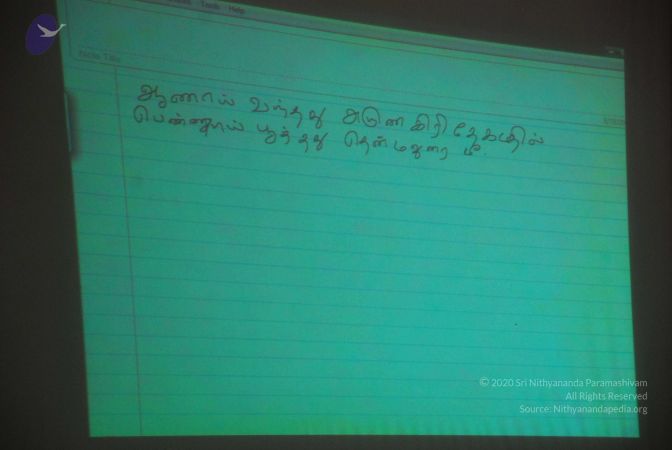 Tools Help
Note Title
ஆணாய் வந்தது அருணகிரி தேகத்தில்
பெண்ணாய் பூத்தது தென் மதுரை மீ
© 2020 Sri Nithyananda Paramashivam
All Rights Reserved
Source: Nithyanandapedia.org